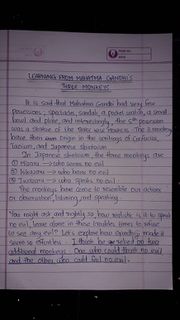 LEARNING FROM MAHATMA GANDHI'S
THREE MONKEYS
It is said that Mahatma Gandhi had very few
possessions, spectacles, sandals, a pocket watch, a small
bowl and plate, and interestingly, the 5th possession
was a statue of the three wise monkeys. The 3 monkeys
have their own origin in the writings of Confucius,
Taoism, and Japanese Shintoism.
In Japanese shintoism, the three monkeys are
① Mizaru → who sees no evil
② Mikazaru → who hears no evil
③ Iwazaru → who speaks no evil
The monkeys have come to resemble our actions
of observation, listening, and speaking.
You might ask, and rightly so, how realistic is it to speak
no evil, leave alone in these troubled times to refuse
to see any evil? Let's explore how Gandhiji made it
seem so effortless. I think he relied on two
additional monkeys. One who could think no evil
and the other who could feel no evil.